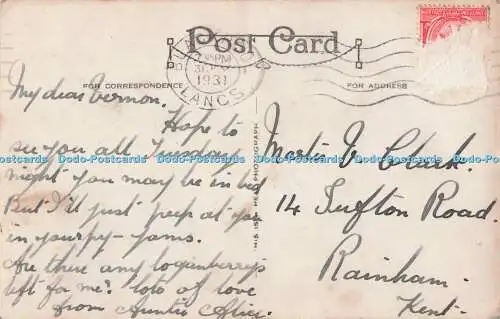 Post Card
FOR CORRESPONDENCE
FOR ADDRESS
PM
1931
LANCS
My dear Vernon.
Hope to
see you all Tuesday
night you may be in bed
But I'll just peep at you
in your py-jams.
Are there any loganberrys
left for me? lots of love
from Auntie Alice.
Master V Clark.
14 Tufton Road.
Rainham.
Kent.
THIS IS A REAL PHOTOGRAPH
Dodo-Postcards Dodo-Postcards Dodo-Postcards Dodo-Postcards Dodo-Postcards